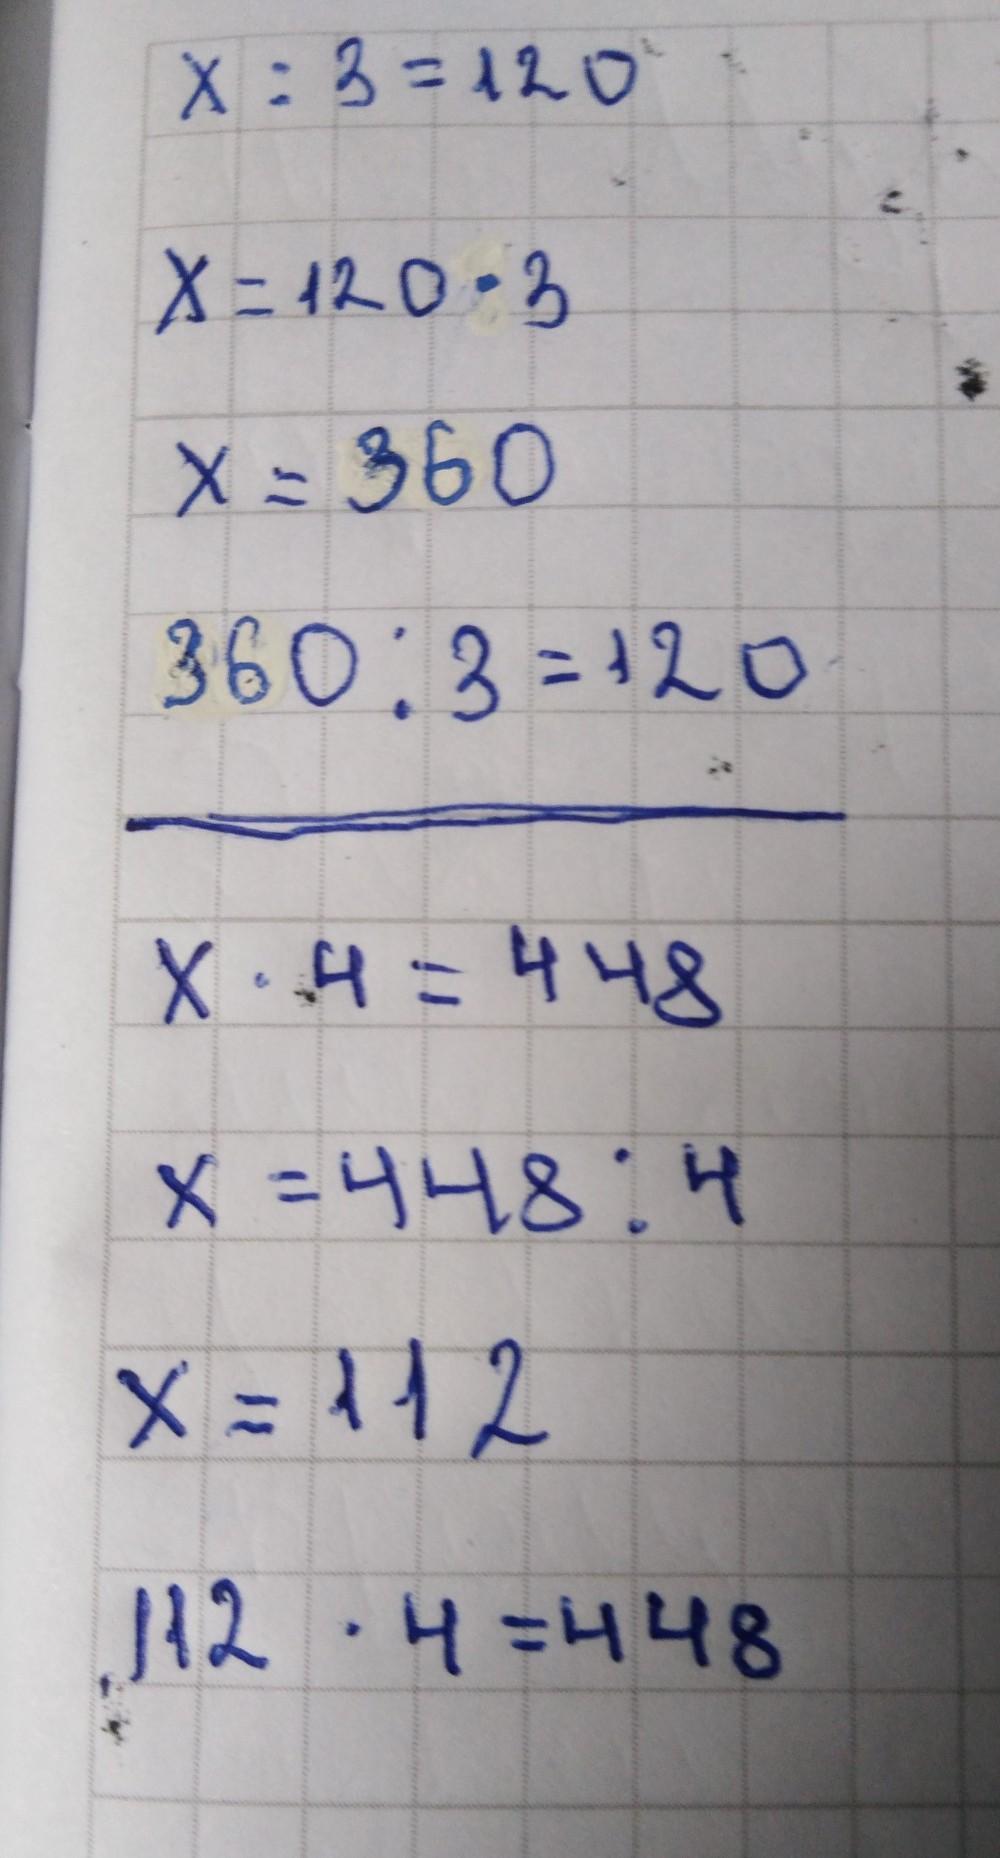 x : 3 = 120
x = 120 · 3
x = 360
360 : 3 = 120
x · 4 = 448
x = 448 : 4
x = 112
112 · 4 = 448